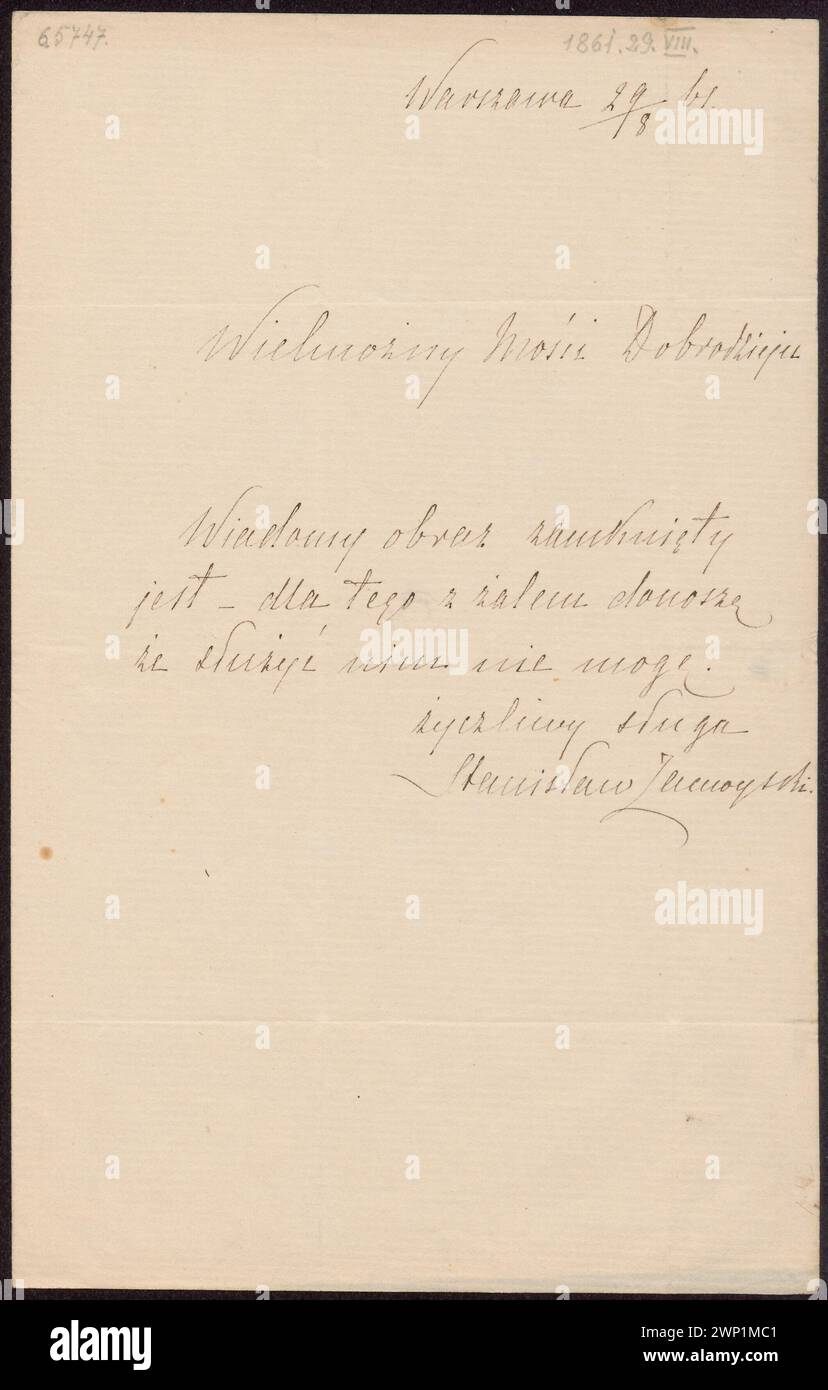 65747.
1861.29.VIII.
Warszawa 29/8 61.
Wielmożny Mości Dobrodzieju
Wiadomy obraz zamknięty
jest – dla tego z żalem donoszę
że służyć nim nie mogę.
życzliwy sługa
Stanisław Zamoyski.
alamy
alamy
alamy
alamy
Image ID: 2WP1MC1
www.alamy.com